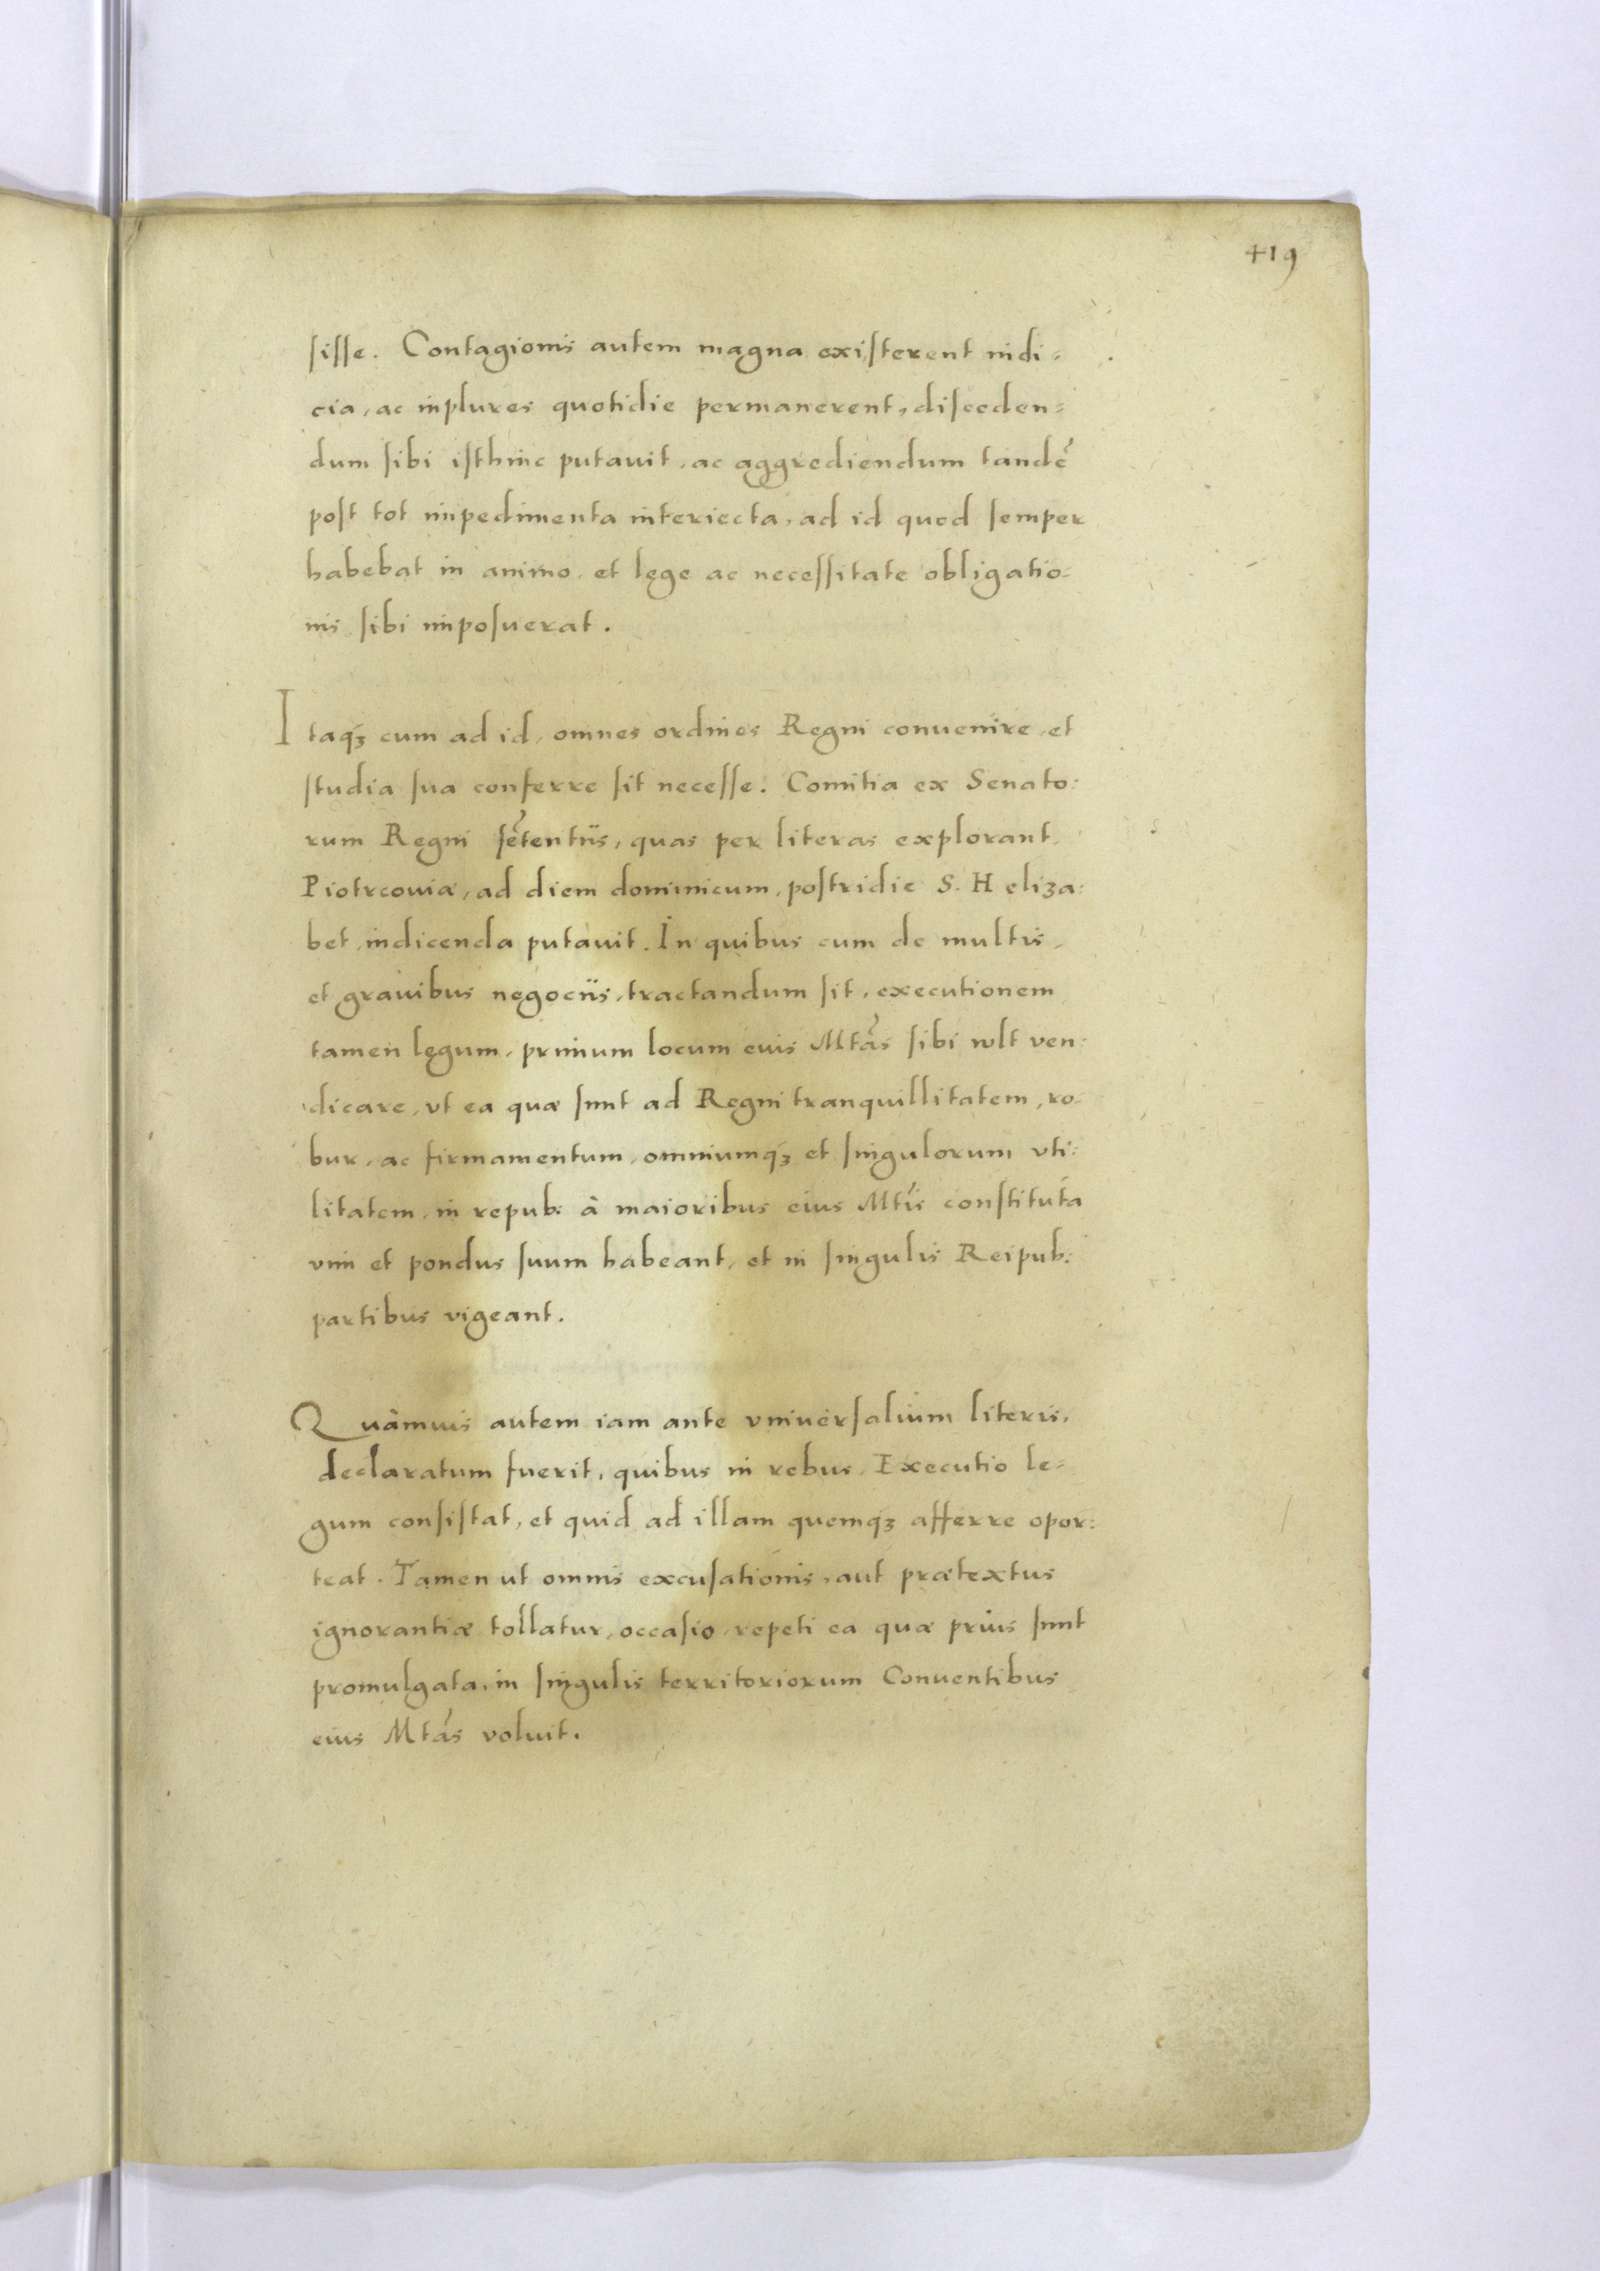 419
sisse. Contagionis autem magna existerent indi-
cia, ac inplures quotidie permanerent, disceden-
dum sibi isthinc putauit, ac aggrediendum tandē
post tot impedimenta interiecta, ad id quod semper
habebat in animo, et lege ac necessitate obligatio-
nis sibi imposuerat.
Itaqꝫ cum ad id, omnes ordines Regni conuenire, et
studia sua conferre sit necesse. Comitia ex Senato:
rum Regni sētentiis, quas per literas explorant
Piotrcouiæ, ad diem dominicum, postridie S. Heliza:
bet, indicenda putauit. In quibus cum de multis,
et grauibus negociis, tractandum sit, executionem
tamen legum, primum locum eius Mtās sibi vult ven:
dicare, vt ea quæ sunt ad Regni tranquillitatem, ro-
bur, ac firmamentum, omniumqꝫ et singulorum vti:
litatem, in repub: à maioribus eius Mtis constituta
vim et pondus suum habeant, et in singulis Reipub:
partibus vigeant.
Quàmuis autem iam ante vniuersalium literis,
declaratum fuerit, quibus in rebus, Executio le-
gum consistat, et quid ad illam quemqꝫ afferre opor:
teat. Tamen ut omnis excusationis, aut prætextus
ignorantiæ tollatur, occasio, repeti ea quæ prius sunt
promulgata, in singulis territoriorum Conuentibus
eius Mtás voluit.